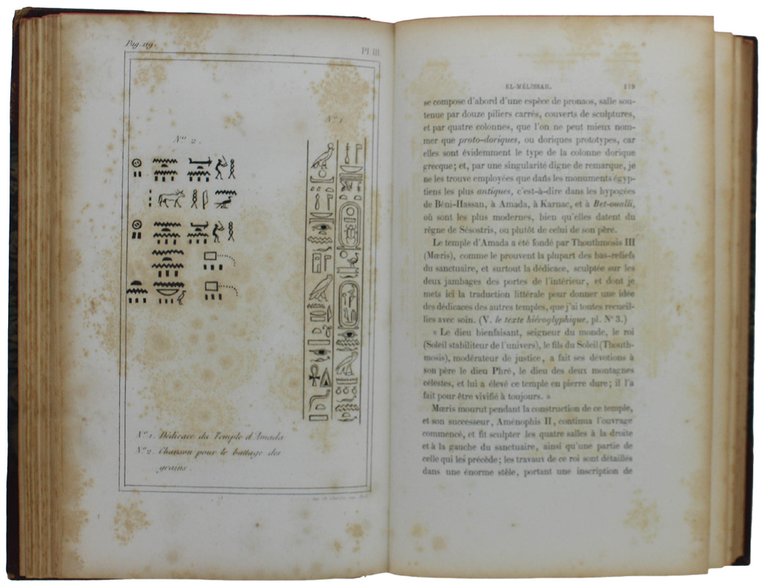 Pag. 119.
Pl III
N° 1
N° 2.
N° 1 Dédicace du Temple d'Amada
N° 2 Chanson pour le battage des
grains
EL-MÉLISSAH. 119
se compose d'abord d'une espèce de pronaos, salle sou-
tenue par douze piliers carrés, couverts de sculptures,
et par quatre colonnes, que l'on ne peut mieux nom-
mer que proto-doriques, ou doriques prototypes, car
elles sont évidemment le type de la colonne dorique
grecque; et, par une singularité digne de remarque, je
ne les trouve employées que dans les monuments égyp-
tiens les plus antiques, c'est-à-dire dans les hypogées
de Béni-Hassan, à Amada, à Karnac, et à Bet-oualli,
où sont les plus modernes, bien qu'elles datent du
règne de Sésostris, ou plutôt de celui de son père.
Le temple d'Amada a été fondé par Thouthmosis III
(Mœris), comme le prouvent la plupart des bas-reliefs
du sanctuaire, et surtout la dédicace, sculptée sur les
deux jambages des portes de l'intérieur, et dont je
mets ici la traduction littérale pour donner une idée
des dédicaces des autres temples, que j'ai toutes recueil-
lies avec soin. (V. le texte hiéroglyphique, pl. N° 3.)
« Le dieu bienfaisant, seigneur du monde, le roi
(Soleil stabiliteur de l'univers), le fils du Soleil (Thouth-
mosis), modérateur de justice, a fait ses dévotions à
son père le dieu Phré, le dieu des deux montagnes
célestes, et lui a élevé ce temple en pierre dure; il l'a
fait pour être vivifié à toujours. »
Mœris mourut pendant la construction de ce temple,
et son successeur, Aménophis II, continua l'ouvrage
commencé, et fit sculpter les quatre salles à la droite
et à la gauche du sanctuaire, ainsi qu'une partie de
celle qui les précède; les travaux de ce roi sont détaillés
dans une énorme stèle, portant une inscription de